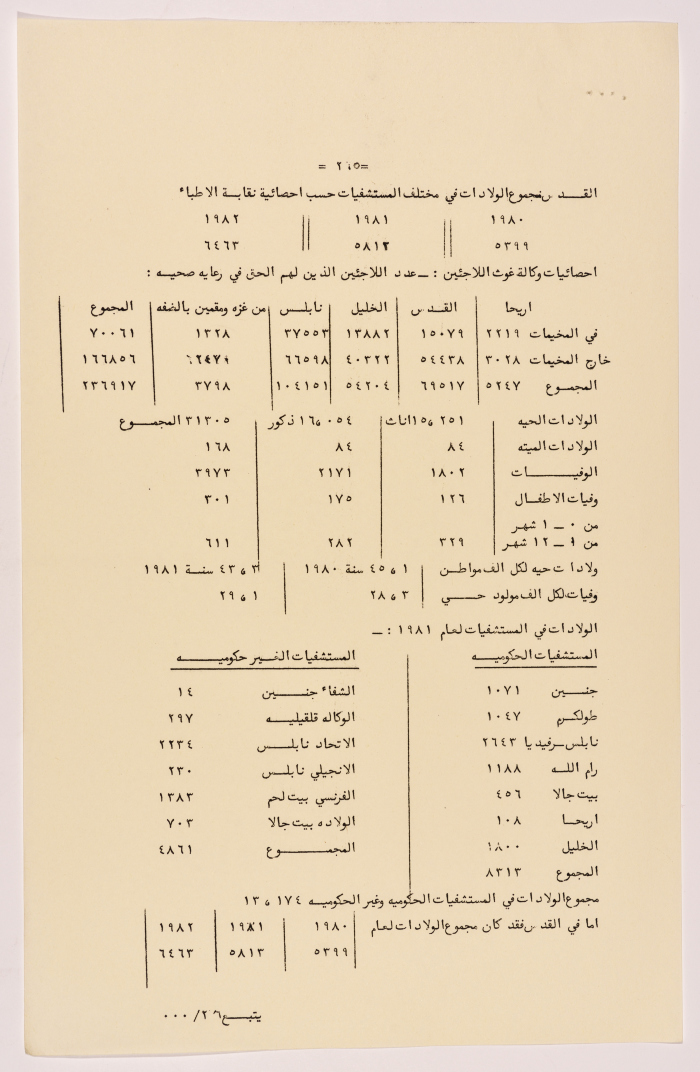 = ٢٥ =
القدس مجموع الولادات في مختلف المستشفيات حسب احصائية نقابة الاطباء
١٩٨٠ ١٩٨١ ١٩٨٢
٥٣٩٩ ٥٨١٢ ٦٤٦٣
احصائيات وكالة غوث اللاجئين : ــ عدد اللاجئين الذين لهم الحق في رعايه صحيه :
اريحا القدس الخليل نابلس من غزه ومقمين بالضفه المجموع
في المخيمات ٢٢١٩ ١٥٠٧٩ ١٣٨٨٢ ٣٧٥٥٣ ١٣٢٨ ٧٠٠٦١
خارج المخيمات ٣٠٢٨ ٥٤٤٣٨ ٤٠٣٢٢ ٦٦٥٩٨ ١٦٦٨٥٦
المجموع ٥٢٤٧ ٦٩٥١٧ ٥٤٢٠٤ ١٠٤١٥١ ٣٧٩٨ ٢٣٦٩١٧
الولادات الحيه ٢٥١و١٥ اناث ٠٥٤و١٦ ذكور ٣١٣٠٥ المجموع
الولادات الميته ٨٤ ٨٤ ١٦٨
الوفيات ١٨٠٢ ٢١٧١ ٣٩٧٣
وفيات الاطفال ١٢٦ ١٧٥ ٣٠١
من ٠ ــ ١ شهر
من ١ ــ ١٢ شهر ٣٢٩ ٢٨٢ ٦١١
ولادات حيه لكل الف مواطن ١و٤٥ سنة ١٩٨٠ ٣و٤٣ سنة ١٩٨١
وفيات لكل الف مولود حي ٣و٢٨ ١و٢٩
الولادات في المستشفيات لعام ١٩٨١ : ــ
المستشفيات الحكوميه المستشفيات الغير حكوميه
جنين ١٠٧١ الشفاء جنين ١٤
طولكرم ١٠٤٧ الوكاله قلقيليه ٢٩٧
نابلس رفيديا ٢٦٤٣ الاتحاد نابلس ٢٢٣٤
رام الله ١١٨٨ الانجيلي نابلس ٢٣٠
بيت جالا ٤٥٦ الفرنسي بيت لحم ١٣٨٣
اريحا ١٠٨ الولاده بيت جالا ٧٠٣
الخليل ١٨٠٠ المجموع ٤٨٦١
المجموع ٨٣١٣
مجموع الولادات في المستشفيات الحكوميه وغير الحكوميه ١٧٤و١٣
اما في القدس فقد كان مجموع الولادات لعام ١٩٨٠ ١٩٨١ ١٩٨٢
٥٣٩٩ ٥٨١٣ ٦٤٦٣
يتبع ٢٦/٠٠٠